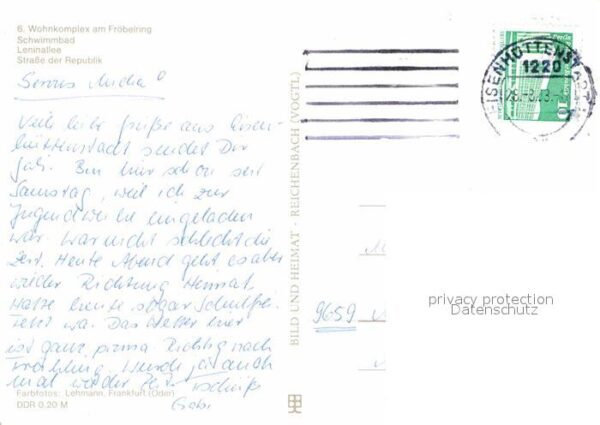 6. Wohnkomplex am Fröbelring
Schwimmbad
Leninallee
Straße der Republik
Servus
Viele liebe Grüße aus Eisen-
hüttenstadt sendet Dir
Bin hier schon seit
Samstag, weil ich zur
Jugendweihe eingeladen
war. War nicht schlecht die
Zeit. Heute Abend geht es aber
wieder Richtung Heimat.
Hatte heute sogar Schulfrei.
Das Wetter hier
ist ganz prima. Richtig nach
Frühling. Wurde ja auch
mal wieder Zeit
Gabi
Farbfotos: Lehmann, Frankfurt (Oder)
DDR 0.20 M
BILD UND HEIMAT · REICHENBACH (VOGTL)
EISENHÜTTENSTADT
1220
Berlin
10
9659
privacy protection
Datenschutz